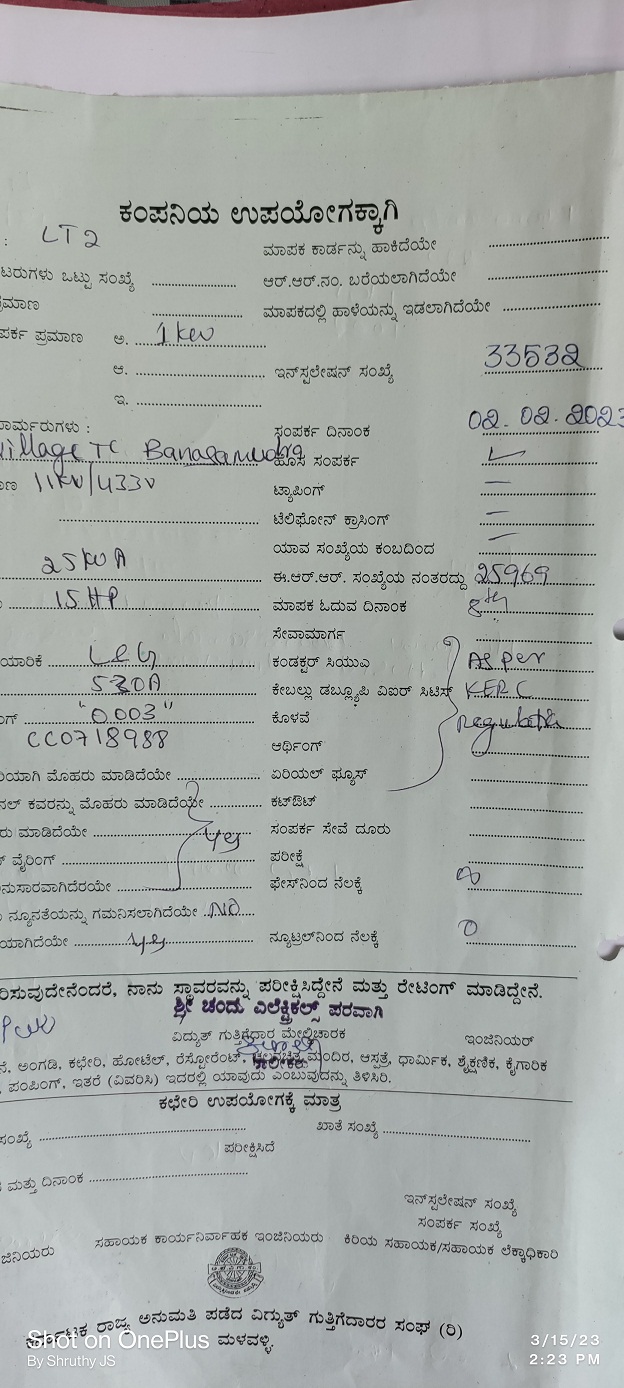 ಕಂಪನಿಯ ಉಪಯೋಗಕ್ಕಾಗಿ
: LT2 ಮಾಪಕ ಕಾರ್ಡನ್ನು ಹಾಕಿದೆಯೇ
ಟರುಗಳು ಒಟ್ಟು ಸಂಖ್ಯೆ ಆರ್.ಆರ್.ನಂ. ಬರೆಯಲಾಗಿದೆಯೇ
ಮಾಪಕದಲ್ಲಿ ಹಾಳೆಯನ್ನು ಇಡಲಾಗಿದೆಯೇ
ಪರ್ಕ ಪ್ರಮಾಣ ಅ. 1 kw
ಆ. ಇನ್‌ಸ್ಟಲೇಷನ್ ಸಂಖ್ಯೆ 33532
ಇ.
ಸಂಪರ್ಕ ದಿನಾಂಕ 02.02.2023
Village TC Banasamudra ಹೊಸ ಸಂಪರ್ಕ
11KV/433V ಟ್ಯಾಪಿಂಗ್ –
ಟೆಲಿಫೋನ್ ಕ್ರಾಸಿಂಗ್ –
ಯಾವ ಸಂಖ್ಯೆಯ ಕಂಬದಿಂದ –
25KVA ಈ.ಆರ್.ಆರ್. ಸಂಖ್ಯೆಯ ನಂತರದ್ದು 25969
15HP ಮಾಪಕ ಓದುವ ದಿನಾಂಕ 8th
ಸೇವಾಮಾರ್ಗ
ಯಾರಿಕೆ L&G ಕಂಡಕ್ಟರ್ ಸಿಯುಎ As per
5-30A ಕೇಬಲ್ಲು ಡಬ್ಲ್ಯೂಪಿ ವಿಐರ್ ಸಿಟಿಸ್ KERC
"0.003" ಕೊಳವೆ regulation
CC0718988 ಆರ್ಥಿಂಗ್
ಯಾಗಿ ಮೊಹರು ಮಾಡಿದೆಯೇ ಏರಿಯಲ್ ಫ್ಯೂಸ್
ನಲ್ ಕವರನ್ನು ಮೊಹರು ಮಾಡಿದೆಯೇ ಕಟ್‌ಔಟ್
ರು ಮಾಡಿದೆಯೇ yes ಸಂಪರ್ಕ ಸೇವೆ ದೂರು
ವೈರಿಂಗ್ ಪರೀಕ್ಷೆ
ನುಸಾರವಾಗಿದೆರಯೇ ಫೇಸ್‌ನಿಂದ ನೆಲಕ್ಕೆ ∞
ನ್ಯೂನತೆಯನ್ನು ಗಮನಿಸಲಾಗಿದೆಯೇ NO
ಯಾಗಿದೆಯೇ yes ನ್ಯೂಟ್ರಲ್‌ನಿಂದ ನೆಲಕ್ಕೆ 0
ರಿಸುವುದೇನೆಂದರೆ, ನಾನು ಸ್ಥಾವರವನ್ನು ಪರೀಕ್ಷಿಸಿದ್ದೇನೆ ಮತ್ತು ರೇಟಿಂಗ್ ಮಾಡಿದ್ದೇನೆ.
ಶ್ರೀ ಚಂದು ಎಲೆಕ್ಟ್ರಿಕಲ್ಸ್ ಪರವಾಗಿ
ವಿದ್ಯುತ್ ಗುತ್ತಿಗೆದಾರ ಮೇಲ್ವಿಚಾರಕ ಇಂಜಿನಿಯರ್
ಮಾಲೀಕರು
ನೆ, ಅಂಗಡಿ, ಕಛೇರಿ, ಹೋಟೆಲ್, ರೆಸ್ಟೋರೆಂಟ್, ಚಲನಚಿತ್ರ ಮಂದಿರ, ಆಸ್ಪತ್ರೆ, ಧಾರ್ಮಿಕ, ಶೈಕ್ಷಣಿಕ, ಕೈಗಾರಿಕ
ಪಂಪಿಂಗ್, ಇತರೆ (ವಿವರಿಸಿ) ಇದರಲ್ಲಿ ಯಾವುದು ಎಂಬುವುದನ್ನು ತಿಳಿಸಿರಿ.
ಕಛೇರಿ ಉಪಯೋಗಕ್ಕೆ ಮಾತ್ರ
ಸಂಖ್ಯೆ ಖಾತೆ ಸಂಖ್ಯೆ
ಪರೀಕ್ಷಿಸಿದೆ
ಮತ್ತು ದಿನಾಂಕ
ಇನ್‌ಸ್ಟಲೇಷನ್ ಸಂಖ್ಯೆ
ಸಂಪರ್ಕ ಸಂಖ್ಯೆ
ಜಿನಿಯರು ಸಹಾಯಕ ಕಾರ್ಯನಿರ್ವಾಹಕ ಇಂಜಿನಿಯರು ಕಿರಿಯ ಸಹಾಯಕ/ಸಹಾಯಕ ಲೆಕ್ಕಾಧಿಕಾರಿ
ಕರ್ನಾಟಕ ರಾಜ್ಯ ಅನುಮತಿ ಪಡೆದ ವಿದ್ಯುತ್ ಗುತ್ತಿಗೆದಾರರ ಸಂಘ (ರಿ)
ಮಳವಳ್ಳಿ.
Shot on OnePlus
By Shruthy JS
3/15/23
2:23 PM